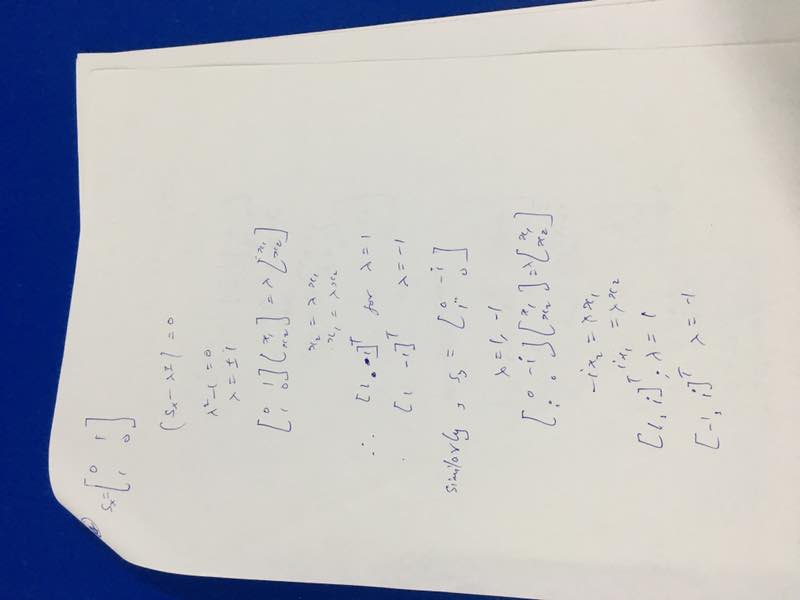 Sx = [0 1
1 0]
|Sx - λI| = 0
λ² - 1 = 0
λ = ±1
[0 1
1 0] [x₁
x₂] = λ [x₁
x₂]
x₂ = λx₁
x₁ = λx₂
∴ [1, 1]ᵀ for λ = 1
[1 -1]ᵀ λ = -1
Similarly, Sy = [0 -i
i 0]
λ = 1, -1
[0 -i
i 0] [x₁
x₂] = λ [x₁
x₂]
-ix₂ = λx₁
ix₁ = λx₂
[1, i]ᵀ; λ = 1
[-1, i]ᵀ λ = -1